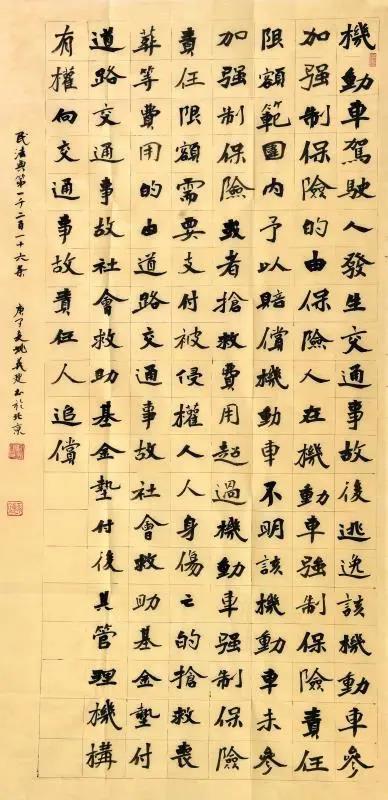 機動車駕駛人發生交通事故後逃逸該機動車參
加强制保險的由保險人在機動車强制保險責任
限額範圍内予以賠償機動車不明該機動車未參
加强制保險或者搶救費用超過機動車强制保險
責任限額需要支付被侵權人人身傷亡的搶救喪
葬等費用的由道路交通事故社會救助基金墊付
道路交通事故社會救助基金墊付後其管理機構
有權向交通事故責任人追償
民法典第一千二百一十六条 庚子夏姚義书於北京